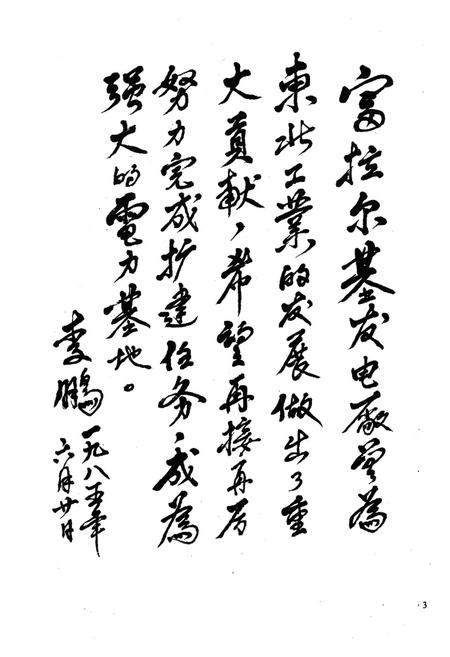 富拉尔基发电廠曾為
東北工業的发展做出了重
大貢献，希望再接再厉
努力完成扩建任务，成為
强大的電力基地。
李鹏
一九八五年
六月廿日
3